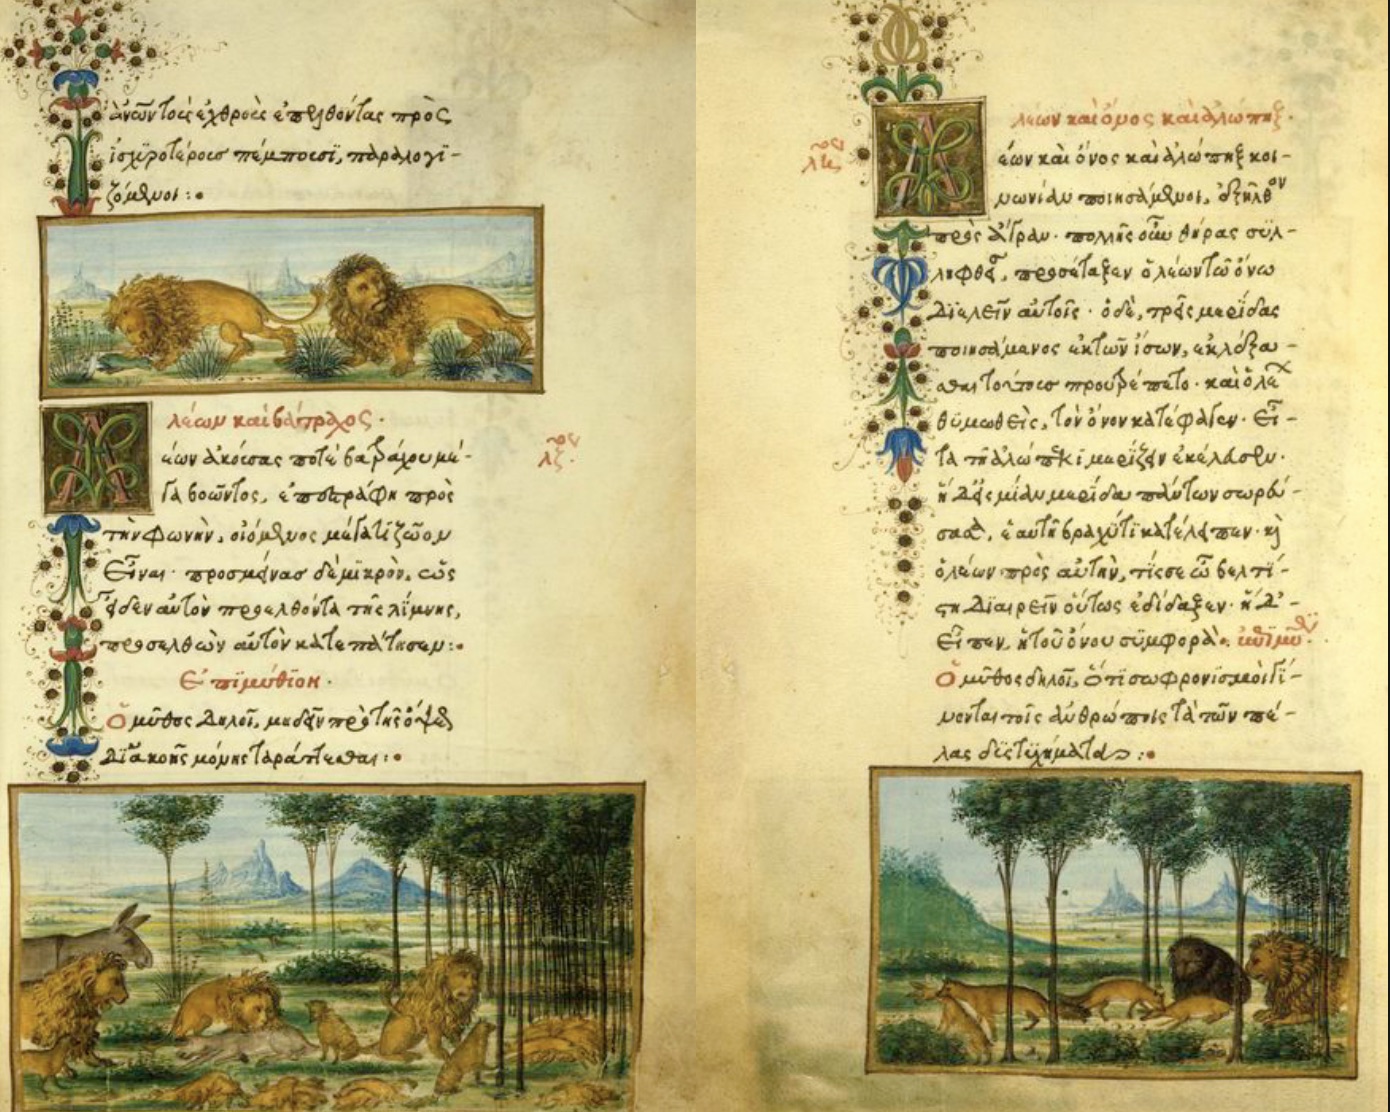 ἀνῶν τοὺς ἐχθροὺς ἐπελθόντας πρὸς
ἰσχυροτέροις πέμπουσι, παραλογι-
ζόμενοι :•
λέων καὶ βάτραχος.
Λέων ἀκούσας ποτὲ βατράχου μέ-
γα βοῶντος, ἐπεστράφη πρὸς
τὴν φωνήν, οἰόμενος μέγα τι ζῶον
εἶναι· προσμείνας δὲ μικρὸν, ὡς
εἶδεν αὐτὸν προελθόντα τῆς λίμνης,
προσελθὼν αὐτὸν κατεπάτησεν:•
Ἐπιμύθιον.
Ὁ μῦθος δηλοῖ, μηδὲν πρὸ τῆς ὄψεως
διὰ ἀκοῆς μόνης ταράττεσθαι:•
λζ.
λέων καὶ ὄνος καὶ ἀλώπηξ.
Λέων καὶ ὄνος καὶ ἀλώπηξ κοι-
νωνίαν ποιησάμενοι, ἐξῆλθον
πρὸς ἄγραν· πολλῆς οὖν θήρας συλ-
ληφθείσης, προσέταξεν ὁ λέων τῷ ὄνῳ
διελεῖν αὐτοῖς· ὁ δὲ, τρεῖς μερίδας
ποιησάμενος ἐκ τῶν ἴσων, ἐκλέξα-
σθαι τούτοις προυτρέπετο· καὶ ὁ λέων
θυμωθεὶς, τὸν ὄνον κατέφαγεν· εἶ-
τα τῇ ἀλώπεκι μερίζειν ἐκέλευσεν·
ἡ δ' εἰς μίαν μερίδα πάντων σωρεύ-
σασα, ἑαυτῇ βραχύ τι κατέλειπεν· καὶ
ὁ λέων πρὸς αὐτὴν, τίς σε ὦ βελτί-
στη διαιρεῖν οὕτως ἐδίδαξεν· ἡ δ'
εἶπεν, ἡ τοῦ ὄνου συμφορά•
Ὁ μῦθος δηλοῖ, ὅτι σωφρονισμοὶ γί-
νονται τοῖς ἀνθρώποις τὰ τῶν πέ-
λας δυστυχήματα :•